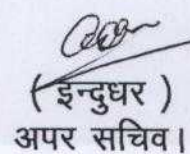 ( इन्दुधर )
अपर सचिव।